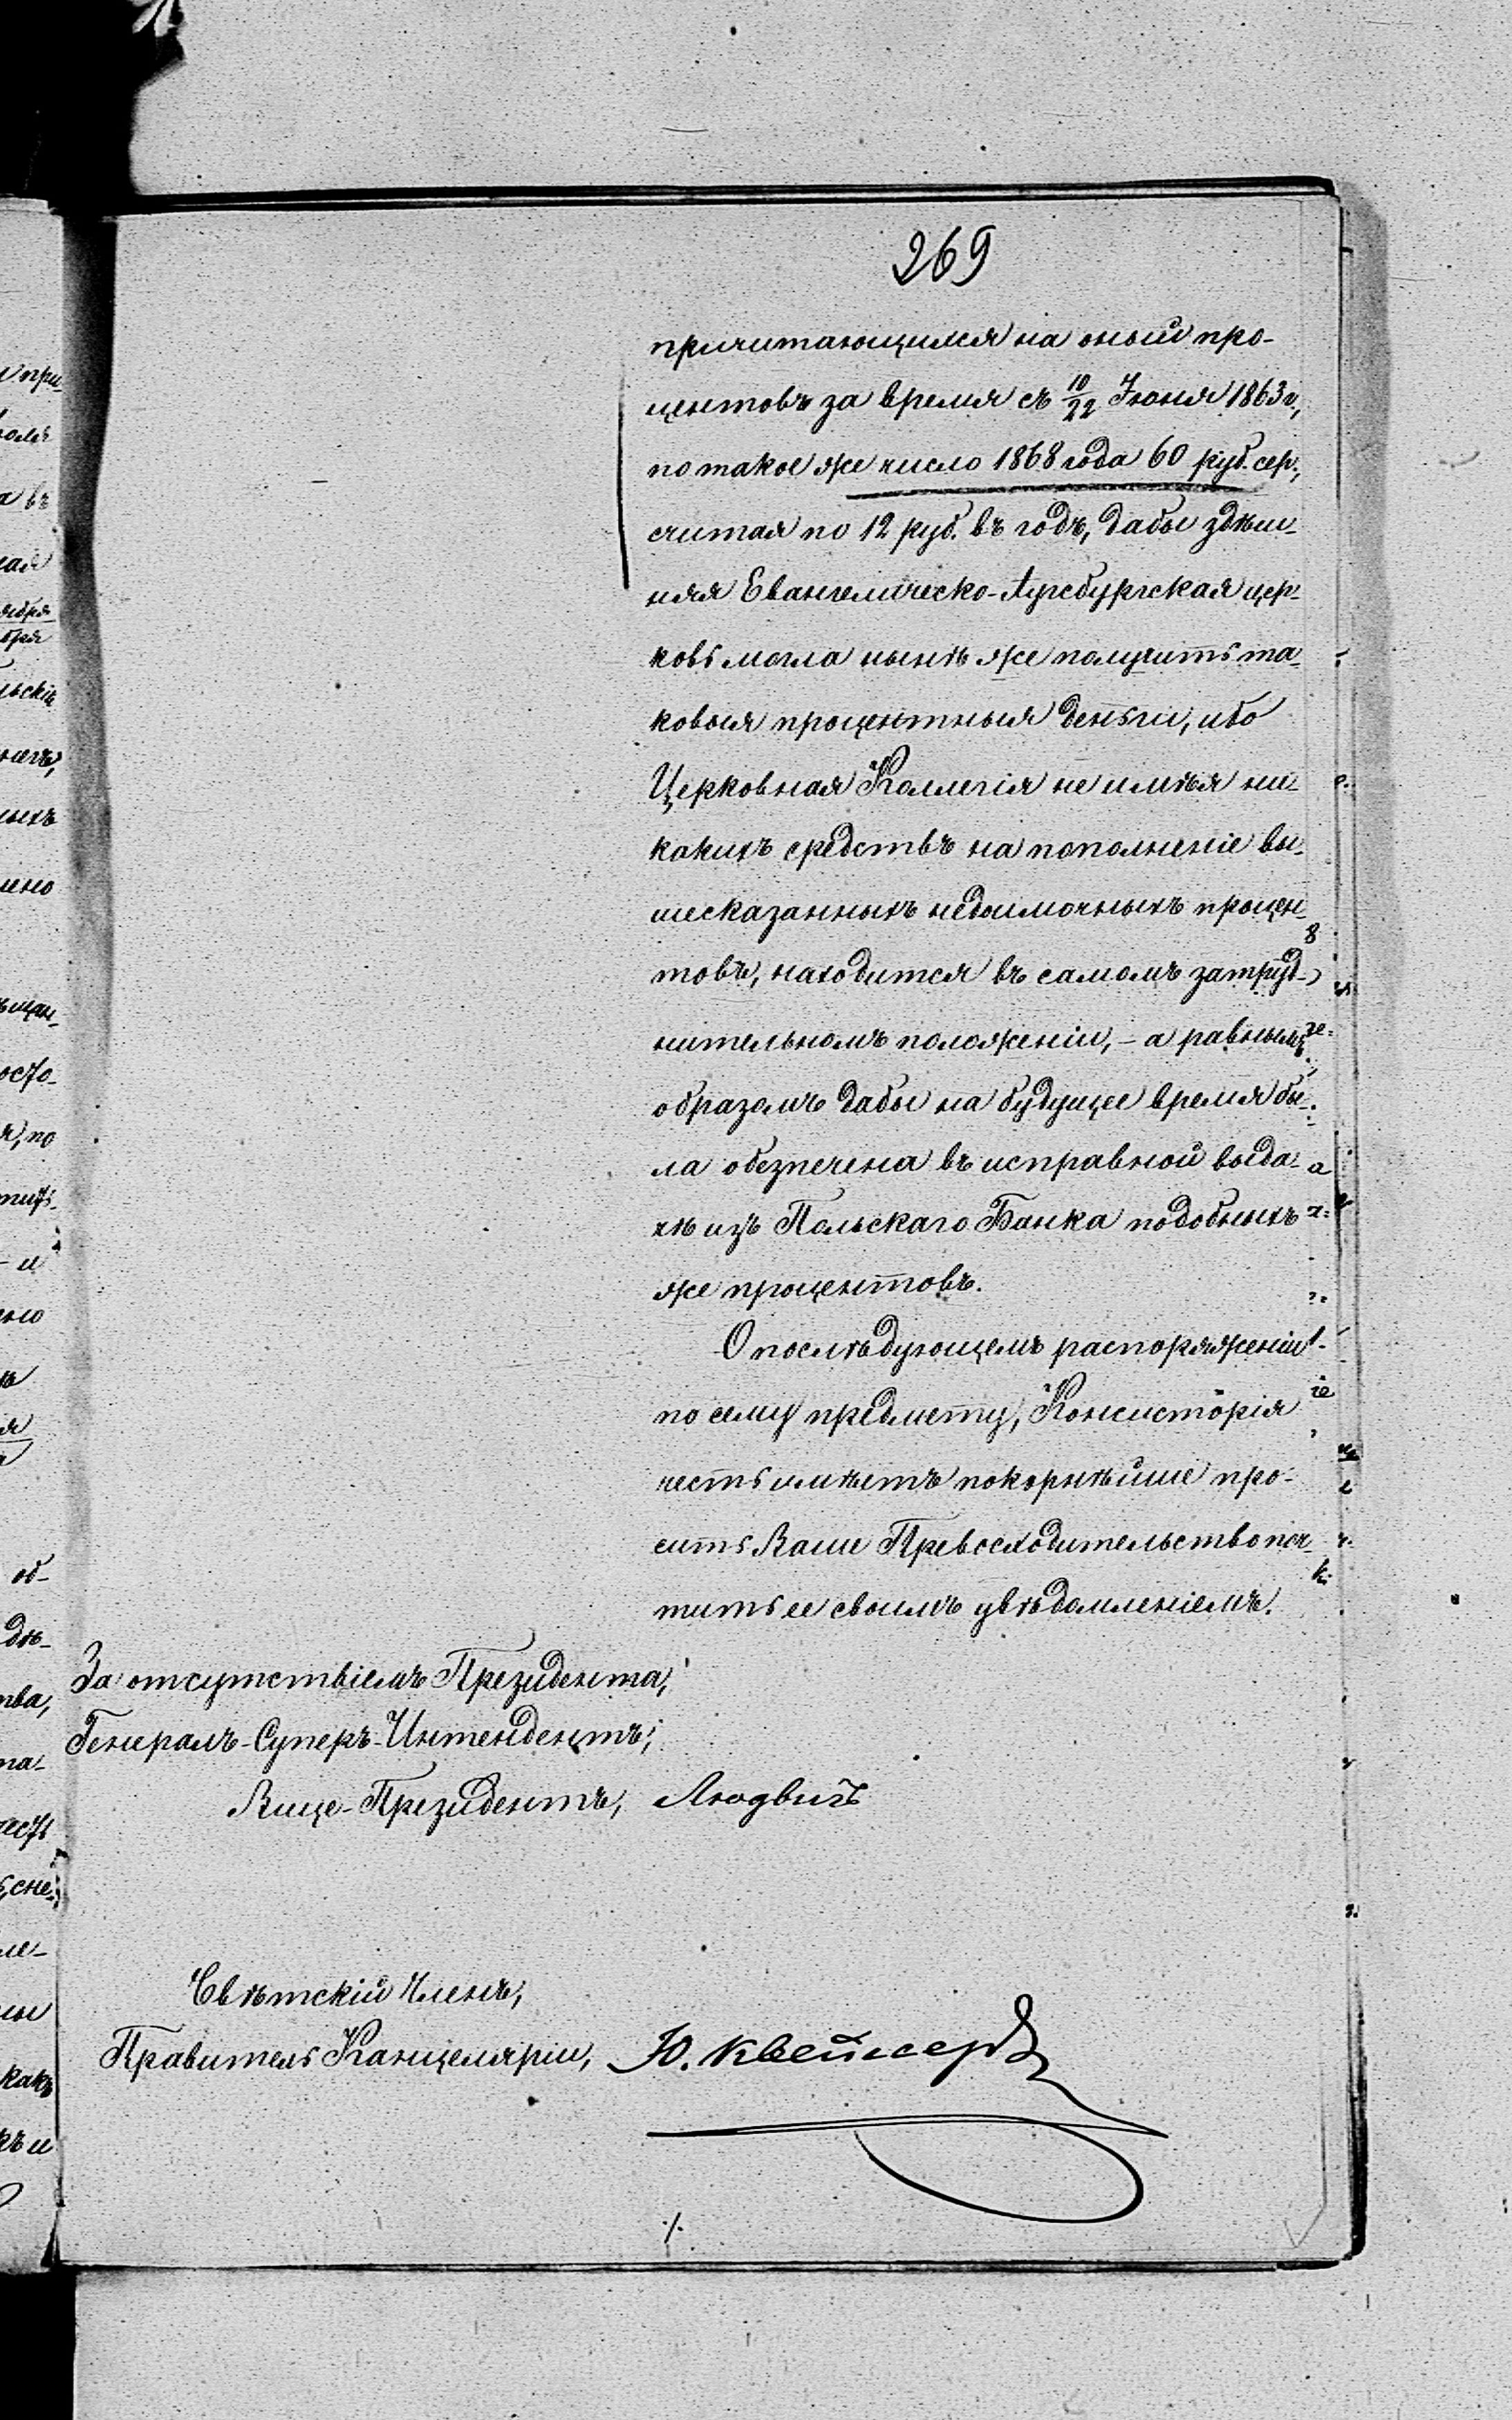 269
причитающимся на оный про-
центовъ за время съ 10/22 Іюня 1863 г.,
по такое же число 1868 года 60 руб. сер.,
считая по 12 руб. въ годъ, дабы здѣш-
няя Евангелическо-Аугсбургская цер-
ковь могла нынѣ же получить та-
ковыя процентныя деньги, ибо
Церковная Коллегія не имѣя ни-
какихъ средствъ на пополненіе вы-
шесказанныхъ недоимочныхъ процен-
товъ, находится въ самомъ затруд-
нительномъ положеніи, - а равнымъ
образомъ дабы на будущее время бы-
ла обезпечена въ исправной выда-
чѣ изъ Польскаго Банка подобныхъ
же процентовъ.
О послѣдующемъ распоряженіи
по сему предмету, Консисторія
честь имѣетъ покорнѣйше про-
сить Ваше Превосходительство поч-
тить ее своимъ увѣдомленіемъ.
За отсутствіемъ Президента,
Генералъ-Суперъ-Интендентъ,
Вице-Президентъ, Людвигъ
Свѣтскій Членъ,
Правитель Канцеляріи, Ю.